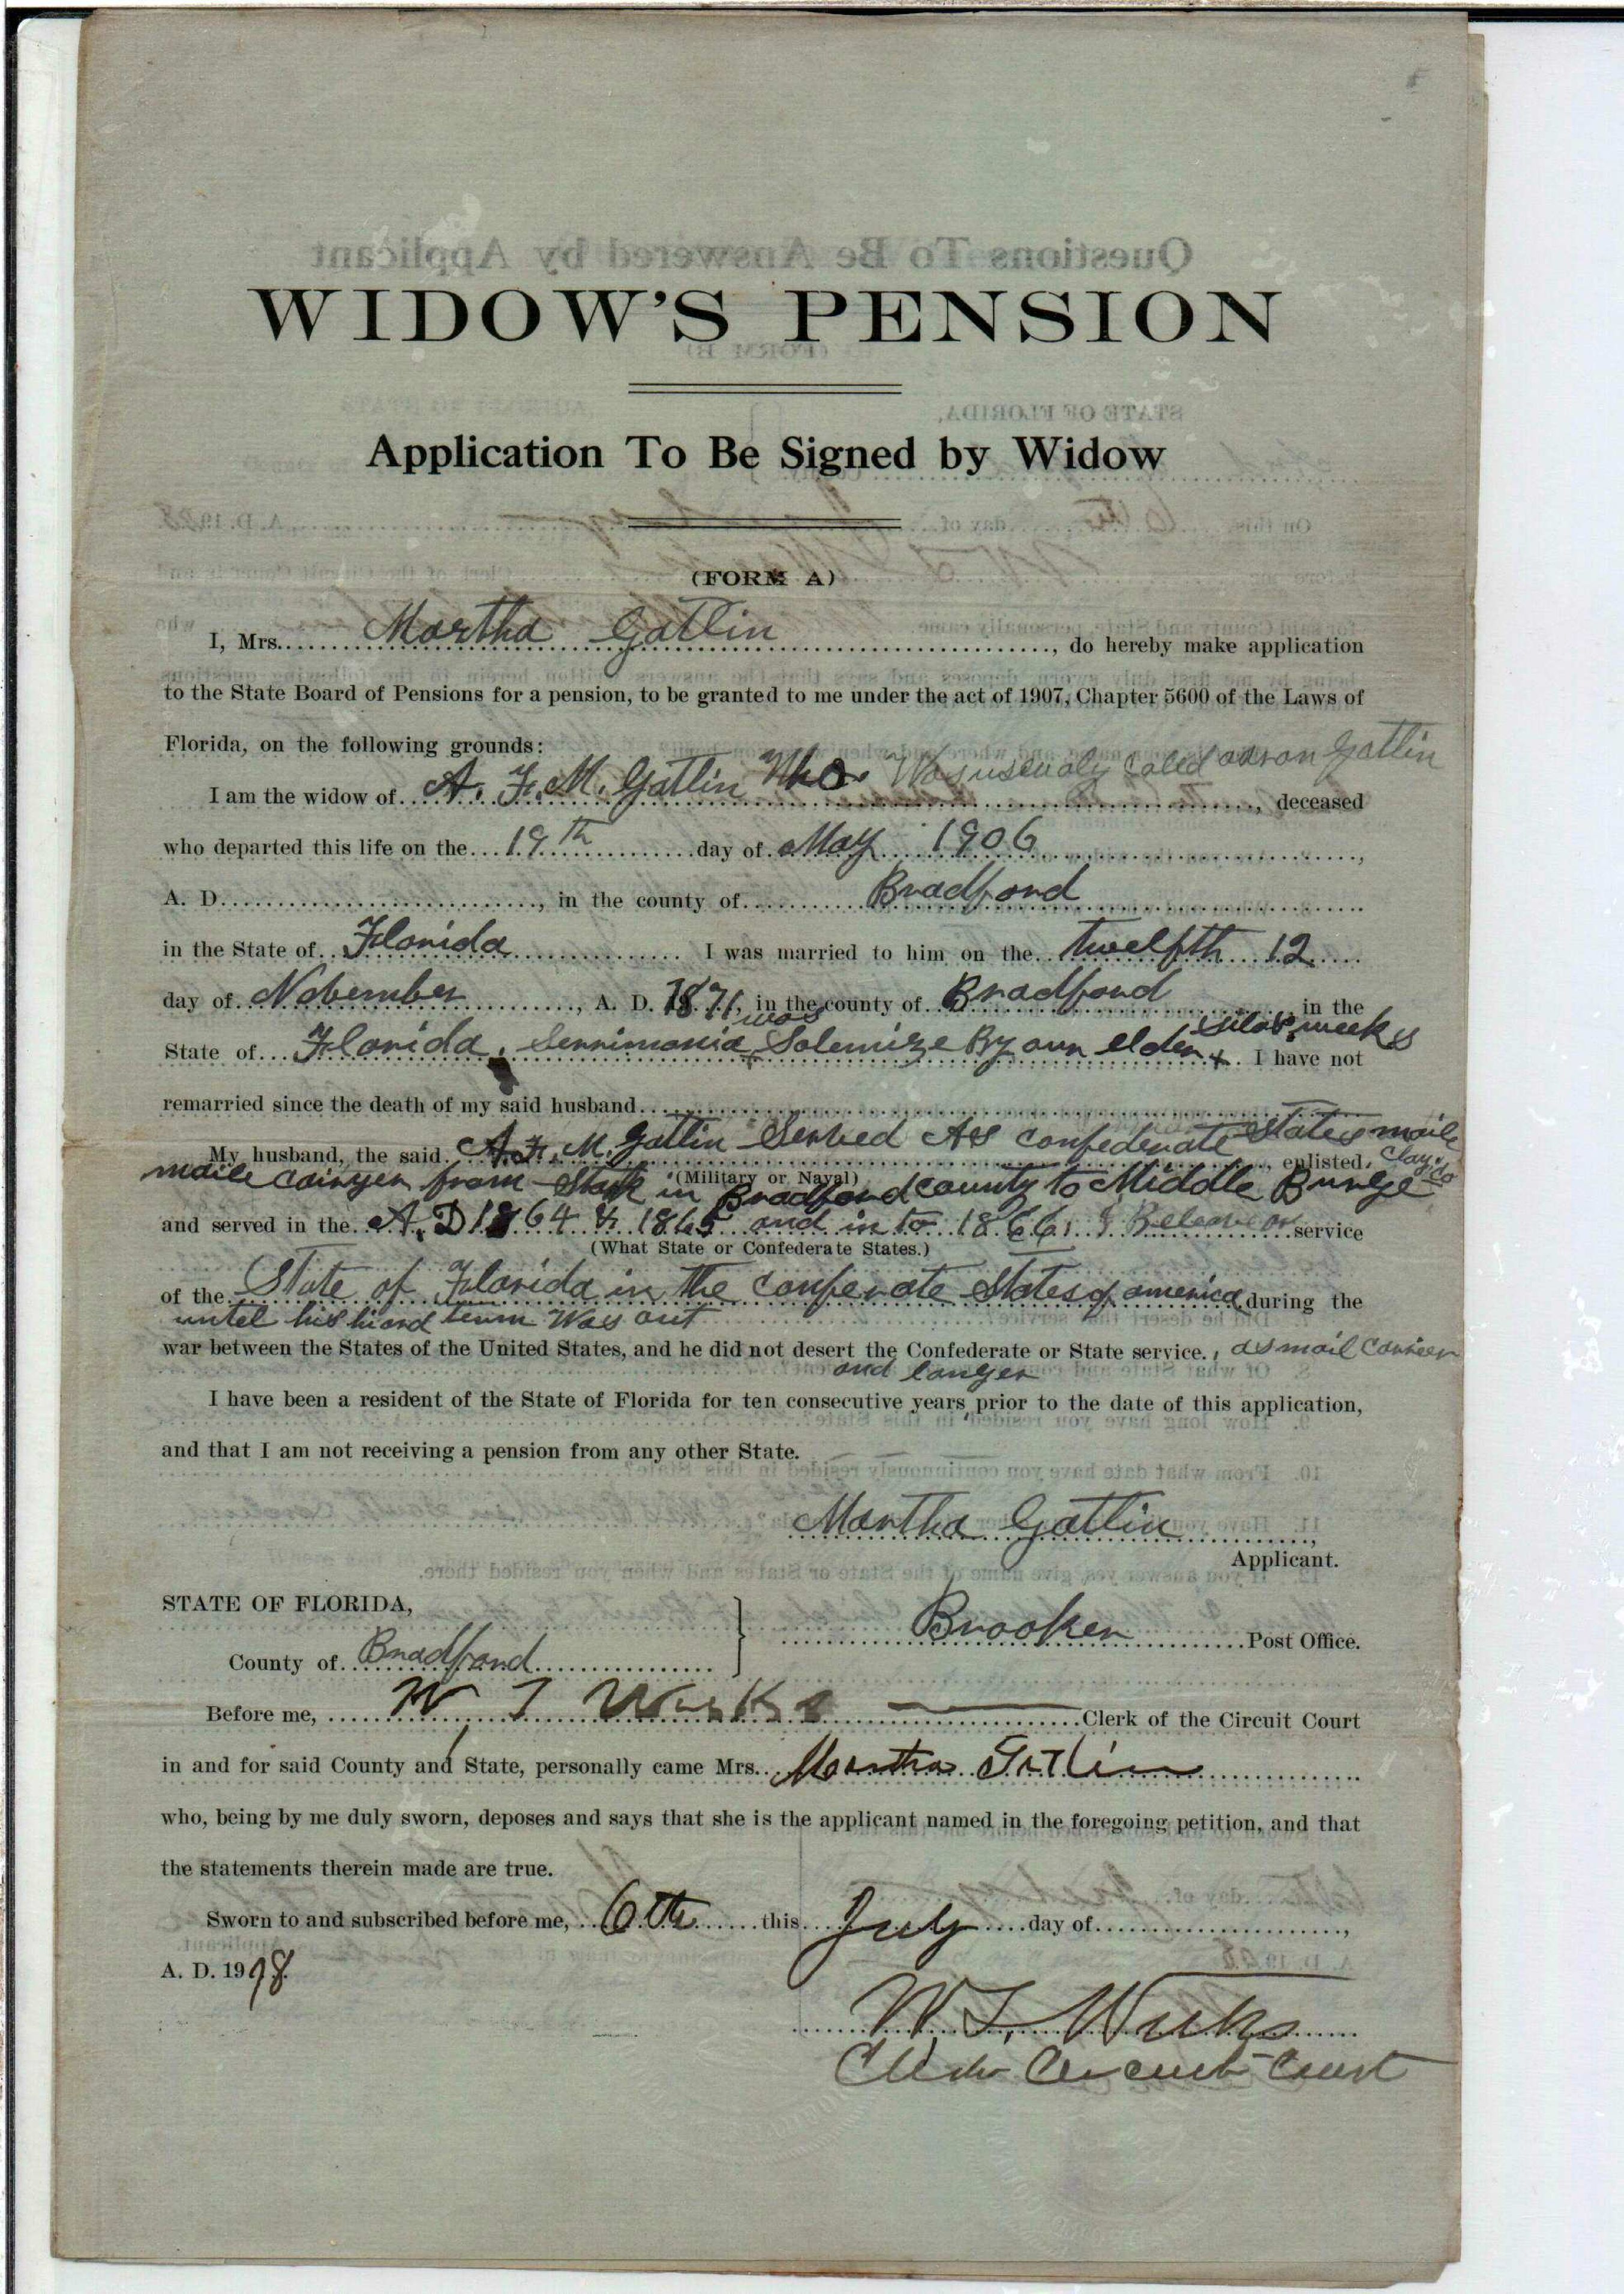 WIDOW'S PENSION
Application To Be Signed by Widow
(FORM A)
I, Mrs. Martha Gatlin, do hereby make application
to the State Board of Pensions for a pension, to be granted to me under the act of 1907, Chapter 5600 of the Laws of
Florida, on the following grounds:
I am the widow of A. F. M. Gatlin Who Was usually called aaron Gatlin, deceased
who departed this life on the 19th day of May 1906,
A. D., in the county of Bradford
in the State of Florida I was married to him on the twelfth 12
day of November, A. D. 1871, in the county of Bradford in the
State of Florida. Serrimonia was Solemize By our elder Silas weeks. I have not
remarried since the death of my said husband
My husband, the said A. F. M. Gatlin Served As confederate States maile, enlisted
(Military or Naval)
maile cairyer from Stark in Bradford county to Middle Burge Clay co
and served in the A. D 1864 & 1865 and in to 1866 I Beleave or service
(What State or Confederate States.)
of the State of Florida in the confenate States of america during the
until his hiard term Was out
war between the States of the United States, and he did not desert the Confederate or State service., as mail carrier
and longer
I have been a resident of the State of Florida for ten consecutive years prior to the date of this application,
and that I am not receiving a pension from any other State.
Martha Gatlin,
Applicant.
STATE OF FLORIDA,
County of Bradford
Brooker Post Office.
Before me, W. T. Weeks Clerk of the Circuit Court
in and for said County and State, personally came Mrs. Martha Gatlin
who, being by me duly sworn, deposes and says that she is the applicant named in the foregoing petition, and that
the statements therein made are true.
Sworn to and subscribed before me, 6th this July day of,
A. D. 19
W. T. Weeks
Clerk Circuit Court